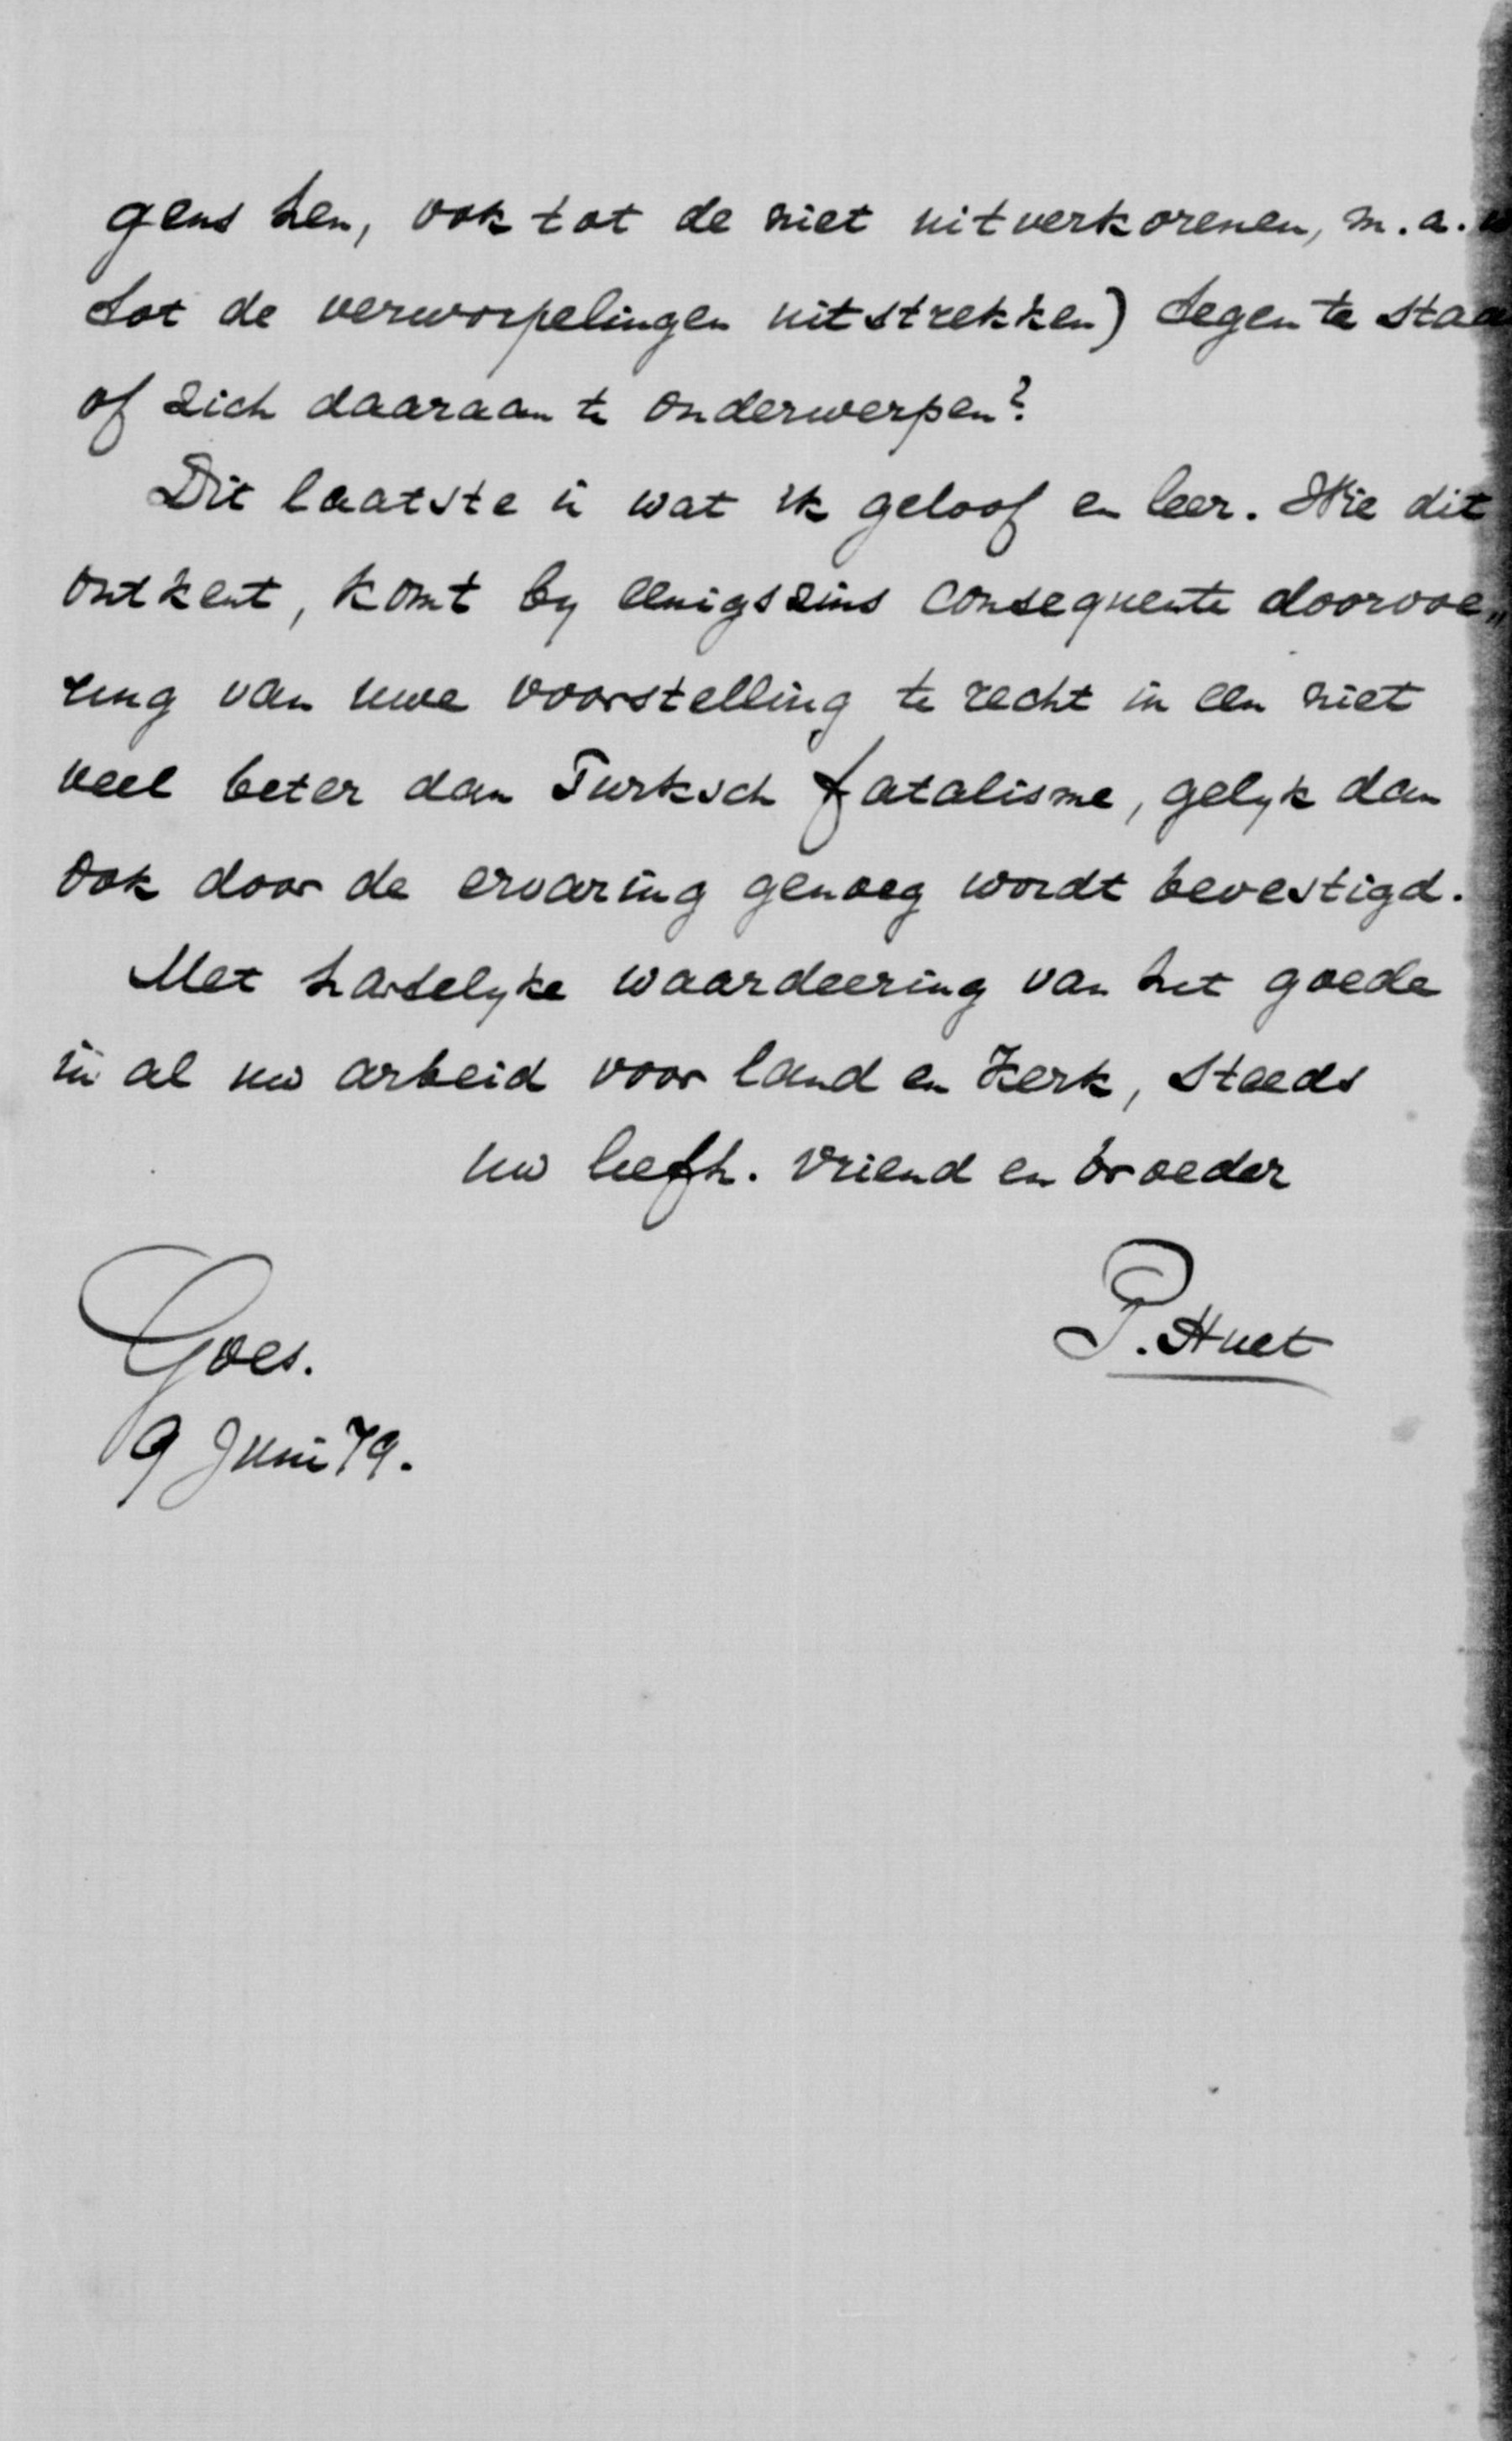 gens hen, ook tot de niet uitverkorenen, m.a.w
tot de verworpelingen uitstrekken) tegen te staa
of zich daaraan te onderwerpen?
Dit laatste is wat ik geloof en leer. Wie dit
ontkent, komt by eenigszins consequente doorvoe„
ring van uwe voorstelling te recht in een niet
veel beter dan Turksch fatalisme, gelyk dan
ook door de ervaring genoeg wordt bevestigd.
Met hartelyke waardeering van het goede
in al uw arbeid voor land en Kerk, steeds
uw liefh. vriend en broeder
P. Huet
Goes.
9 Juni 79.